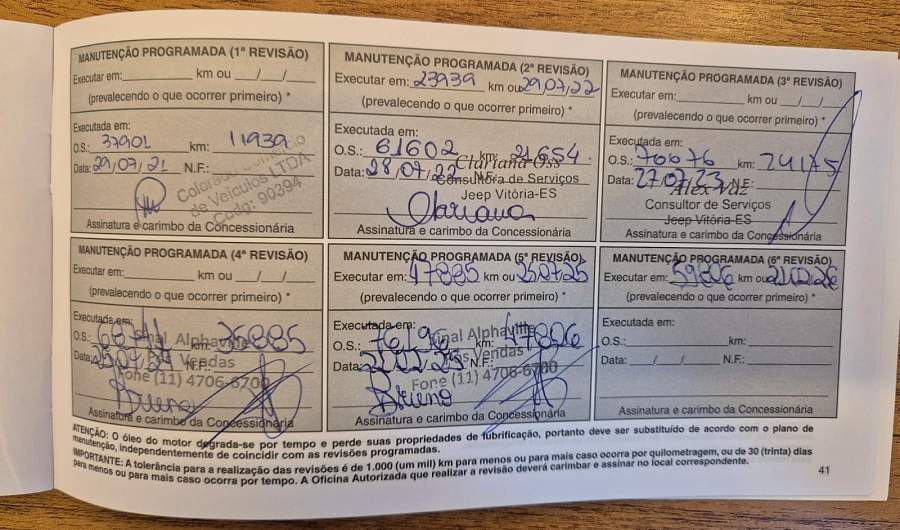 MANUTENÇÃO PROGRAMADA (1ª REVISÃO)
Executar em: km ou / /
(prevalecendo o que ocorrer primeiro) *
Executada em:
O.S.: 37901 km: 11939
Data: 29/07/21 N.F.:
de Veículos LTDA
Codg: 90394
Assinatura e carimbo da Concessionária
MANUTENÇÃO PROGRAMADA (2ª REVISÃO)
Executar em: 23939 km ou 29/07/22
(prevalecendo o que ocorrer primeiro) *
Executada em:
O.S.: 61602 km: 21654
Data: 28/07/22 N.F.:
Consultora de Serviços
Jeep Vitória-ES
Assinatura e carimbo da Concessionária
MANUTENÇÃO PROGRAMADA (3ª REVISÃO)
Executar em: km ou / /
(prevalecendo o que ocorrer primeiro) *
Executada em:
O.S.: 70676 km: 24175
Data: 27/07/23 N.F.:
Alex Vaz
Consultor de Serviços
Jeep Vitória-ES
Assinatura e carimbo da Concessionária
MANUTENÇÃO PROGRAMADA (4ª REVISÃO)
Executar em: km ou / /
(prevalecendo o que ocorrer primeiro) *
Executada em:
O.S.: km: 36885
Alphaville
Data: 25/07/24
Vendas
Fone (11) 4706-6700
Bruno
Assinatura e carimbo da Concessionária
MANUTENÇÃO PROGRAMADA (5ª REVISÃO)
Executar em: 47885 km ou 25/07/25
(prevalecendo o que ocorrer primeiro) *
Executada em:
O.S.: 76796 km: 47806
Alphaville
Data: N.F.:
Vendas
Fone (11) 4706-6700
Bruno
Assinatura e carimbo da Concessionária
MANUTENÇÃO PROGRAMADA (6ª REVISÃO)
Executar em: 59806 km ou 21/02/26
(prevalecendo o que ocorrer primeiro) *
Executada em:
O.S.: km:
Data: / / N.F.:
Assinatura e carimbo da Concessionária
ATENÇÃO: O óleo do motor degrada-se por tempo e perde suas propriedades de lubrificação, portanto deve ser substituído de acordo com o plano de
manutenção, independentemente de coincidir com as revisões programadas.
IMPORTANTE: A tolerância para a realização das revisões é de 1.000 (um mil) km para menos ou para mais caso ocorra por quilometragem, ou de 30 (trinta) dias
para menos ou para mais caso ocorra por tempo. A Oficina Autorizada que realizar a revisão deverá carimbar e assinar no local correspondente.
41